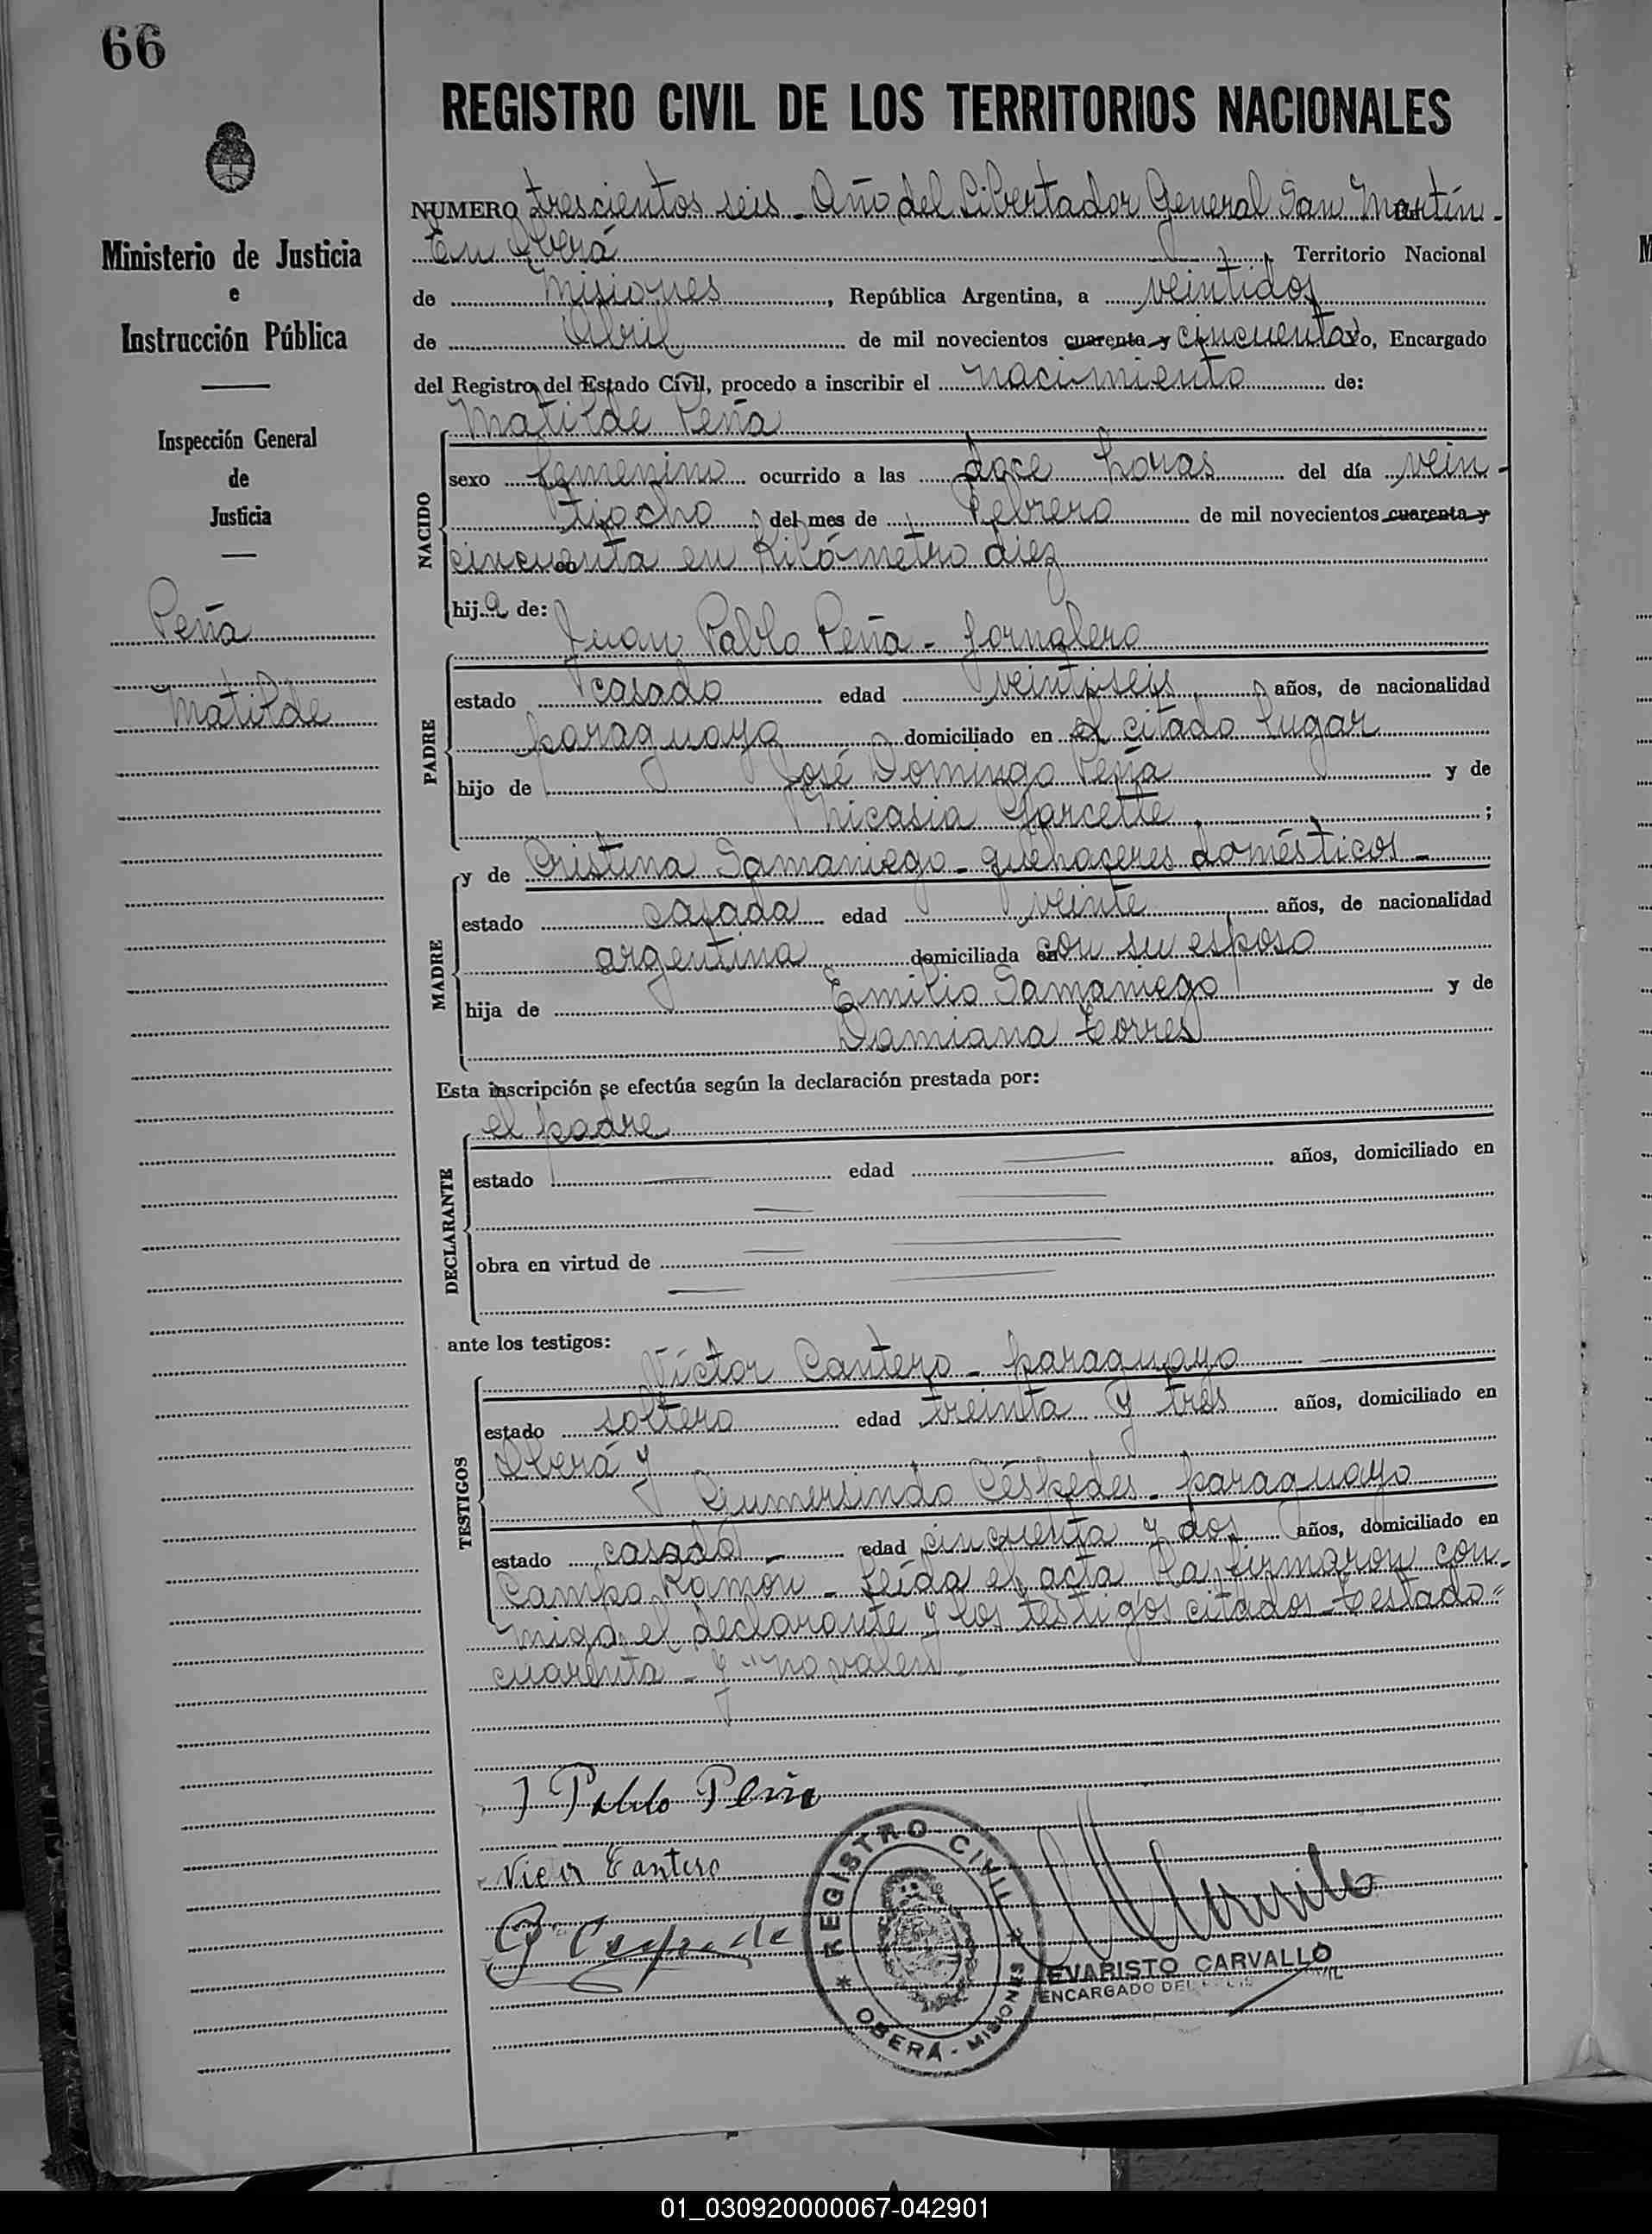 66
REGISTRO CIVIL DE LOS TERRITORIOS NACIONALES
Ministerio de Justicia
e
Instrucción Pública
Inspección General
de
Justicia
Peña
Matilde
NUMERO trescientos seis - Año del Libertador General San Martín -
En Oberá, Territorio Nacional
de Misiones, República Argentina, a veintidos
de Abril de mil novecientos cuarenta y cincuenta Yo, Encargado
del Registro del Estado Civil, procedo a inscribir el nacimiento de:
Matilde Peña
NACIDO
sexo femenino ocurrido a las doce horas del día vein-
tiocho, del mes de Febrero de mil novecientos cuarenta y
cincuenta en Kilómetro diez
hija de:
Juan Pablo Peña - jornalero
PADRE
estado casado edad veintiseis, años, de nacionalidad
paraguaya domiciliado en el citado lugar
hijo de José Domingo Peña y de
Nicasia Garcette;
MADRE
y de Cristina Samaniego - quehaceres domésticos -
estado casada edad veinte años, de nacionalidad
argentina domiciliada con su esposo
hija de Emilio Samaniego y de
Damiana Torres
Esta inscripción se efectúa según la declaración prestada por:
el padre
DECLARANTE
estado edad años, domiciliado en
obra en virtud de
ante los testigos:
Víctor Cantero - paraguayo
TESTIGOS
estado soltero edad treinta y tres años, domiciliado en
Oberá y
Gumersindo Céspedes - paraguayo
estado casado - edad cincuenta y dos años, domiciliado en
Campo Ramon - Leída el acta la firmaron con-
migo, el declarante y los testigos citados - Testado "
cuarenta - y " no valen -
J Pablo Peña
Victor Cantero
G Cespede
REGISTRO CIVIL
OBERÁ - MISIONES
EVARISTO CARVALLO
ENCARGADO DEL
01_030920000067-042901